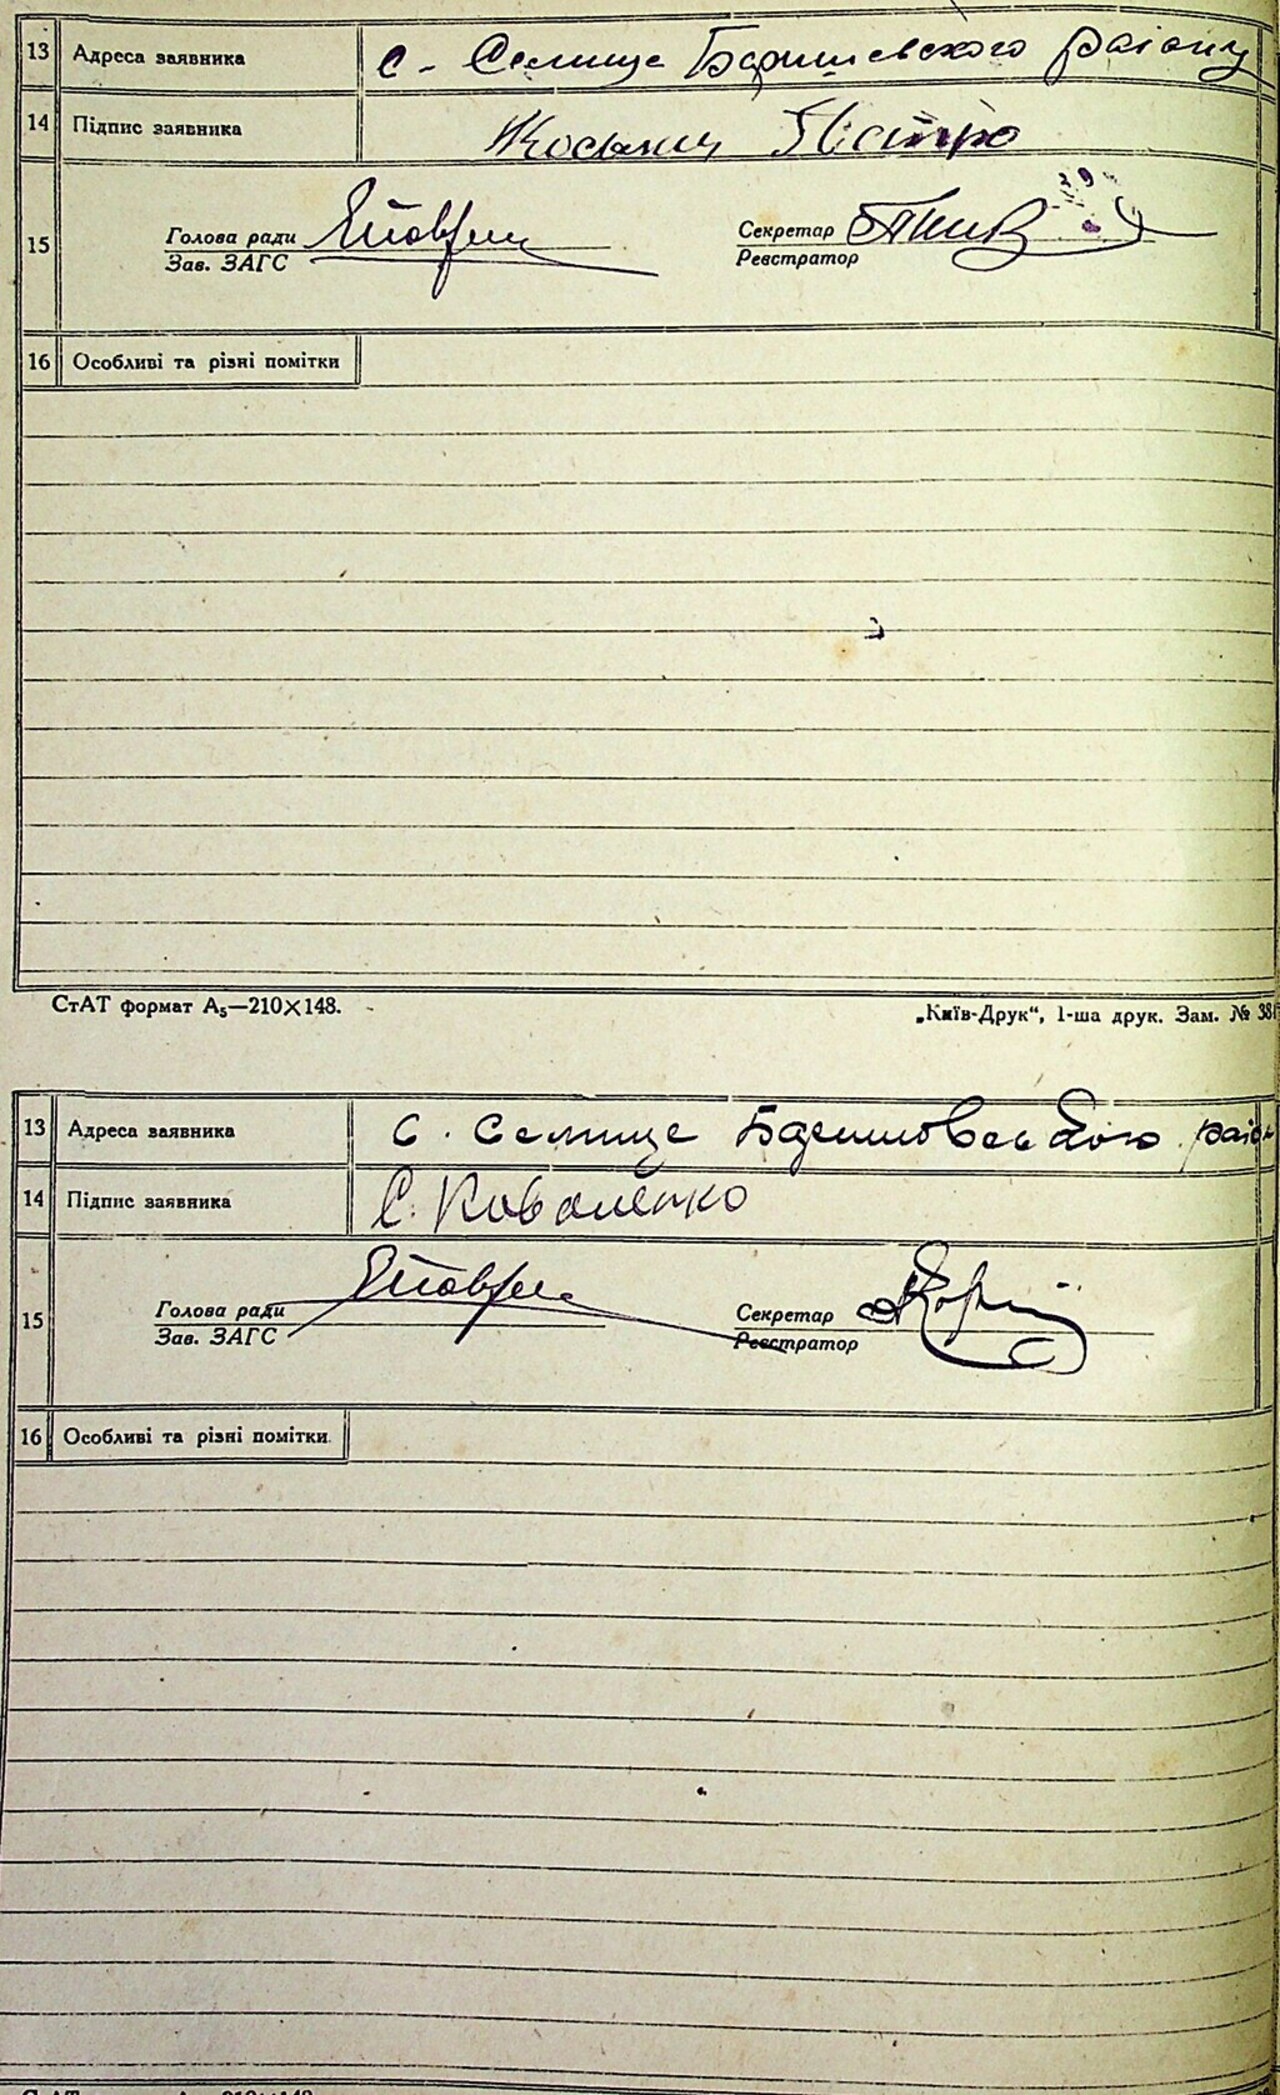 13 Адреса заявника с. Селище Баришевского району
14 Підпис заявника Петро
15 Голова ради Секретар
Зав. ЗАГС Реєстратор
16 Особливі та різні помітки
СтАТ формат А₅—210×148. „Київ-Друк“, 1-ша друк. Зам. №
13 Адреса заявника с. Селище
14 Підпис заявника С. Коваленко
15 Голова ради Секретар
Зав. ЗАГС Реєстратор
16 Особливі та різні помітки